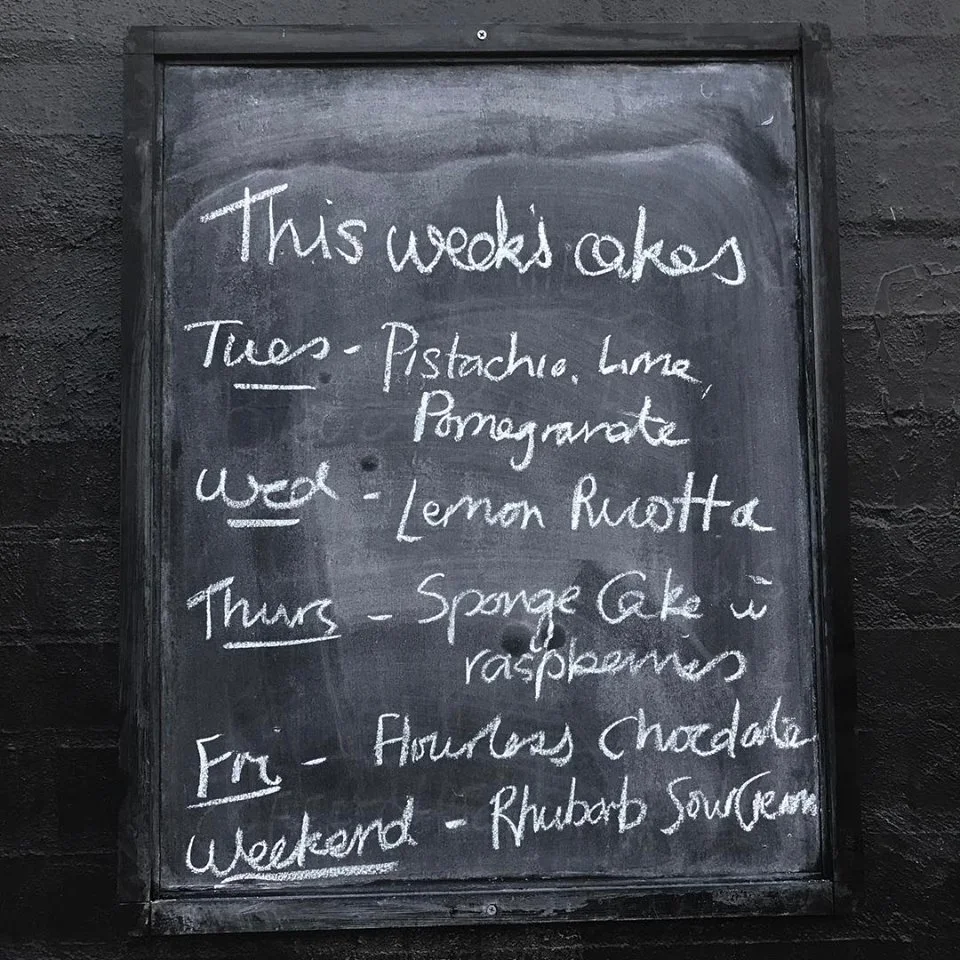 This week's cakes
Tues - Pistachio, Lime,
Pomegranate
Wed - Lemon Ricotta
Thurs - Sponge Cake w
raspberries
Fri - Flourless Chocolate
Weekend - Rhubarb Sour Cream